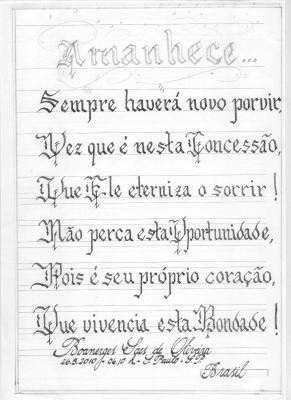 Amanhece...
Sempre haverá novo porvir,
Vez que é nesta Concessão,
Que Ele eterniza o sorrir!
Não perca esta Oportunidade,
Pois é seu próprio coração,
Que vivencia esta Bondade!
Boanerges Saes de Oliveira
26.3.2010/- 06,10 h - S. Paulo - S.P.
Brasil